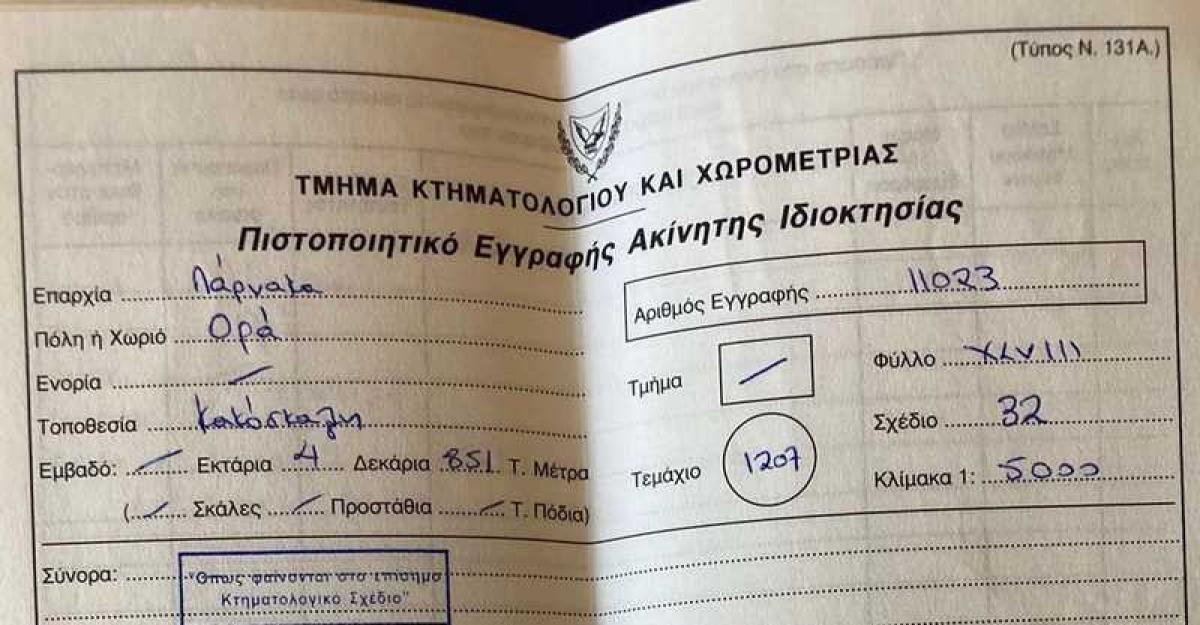 (Τύπος Ν. 131Α.)
ΤΜΗΜΑ ΚΤΗΜΑΤΟΛΟΓΙΟΥ ΚΑΙ ΧΩΡΟΜΕΤΡΙΑΣ
Πιστοποιητικό Εγγραφής Ακίνητης Ιδιοκτησίας
Επαρχία Λάρνακα
Πόλη ή Χωριό Ορά
Ενορία —
Τοποθεσία Κακόσκαλη
Εμβαδό: — Εκτάρια 4 Δεκάρια 851 Τ. Μέτρα
(— Σκάλες — Προστάθια — Τ. Πόδια)
Αριθμός Εγγραφής 11023
Τμήμα — Φύλλο XLVIII
Σχέδιο 32
Τεμάχιο 1207 Κλίμακα 1: 5000
Σύνορα: "Όπως φαίνονται στο επίσημο
Κτηματολογικό Σχέδιο"